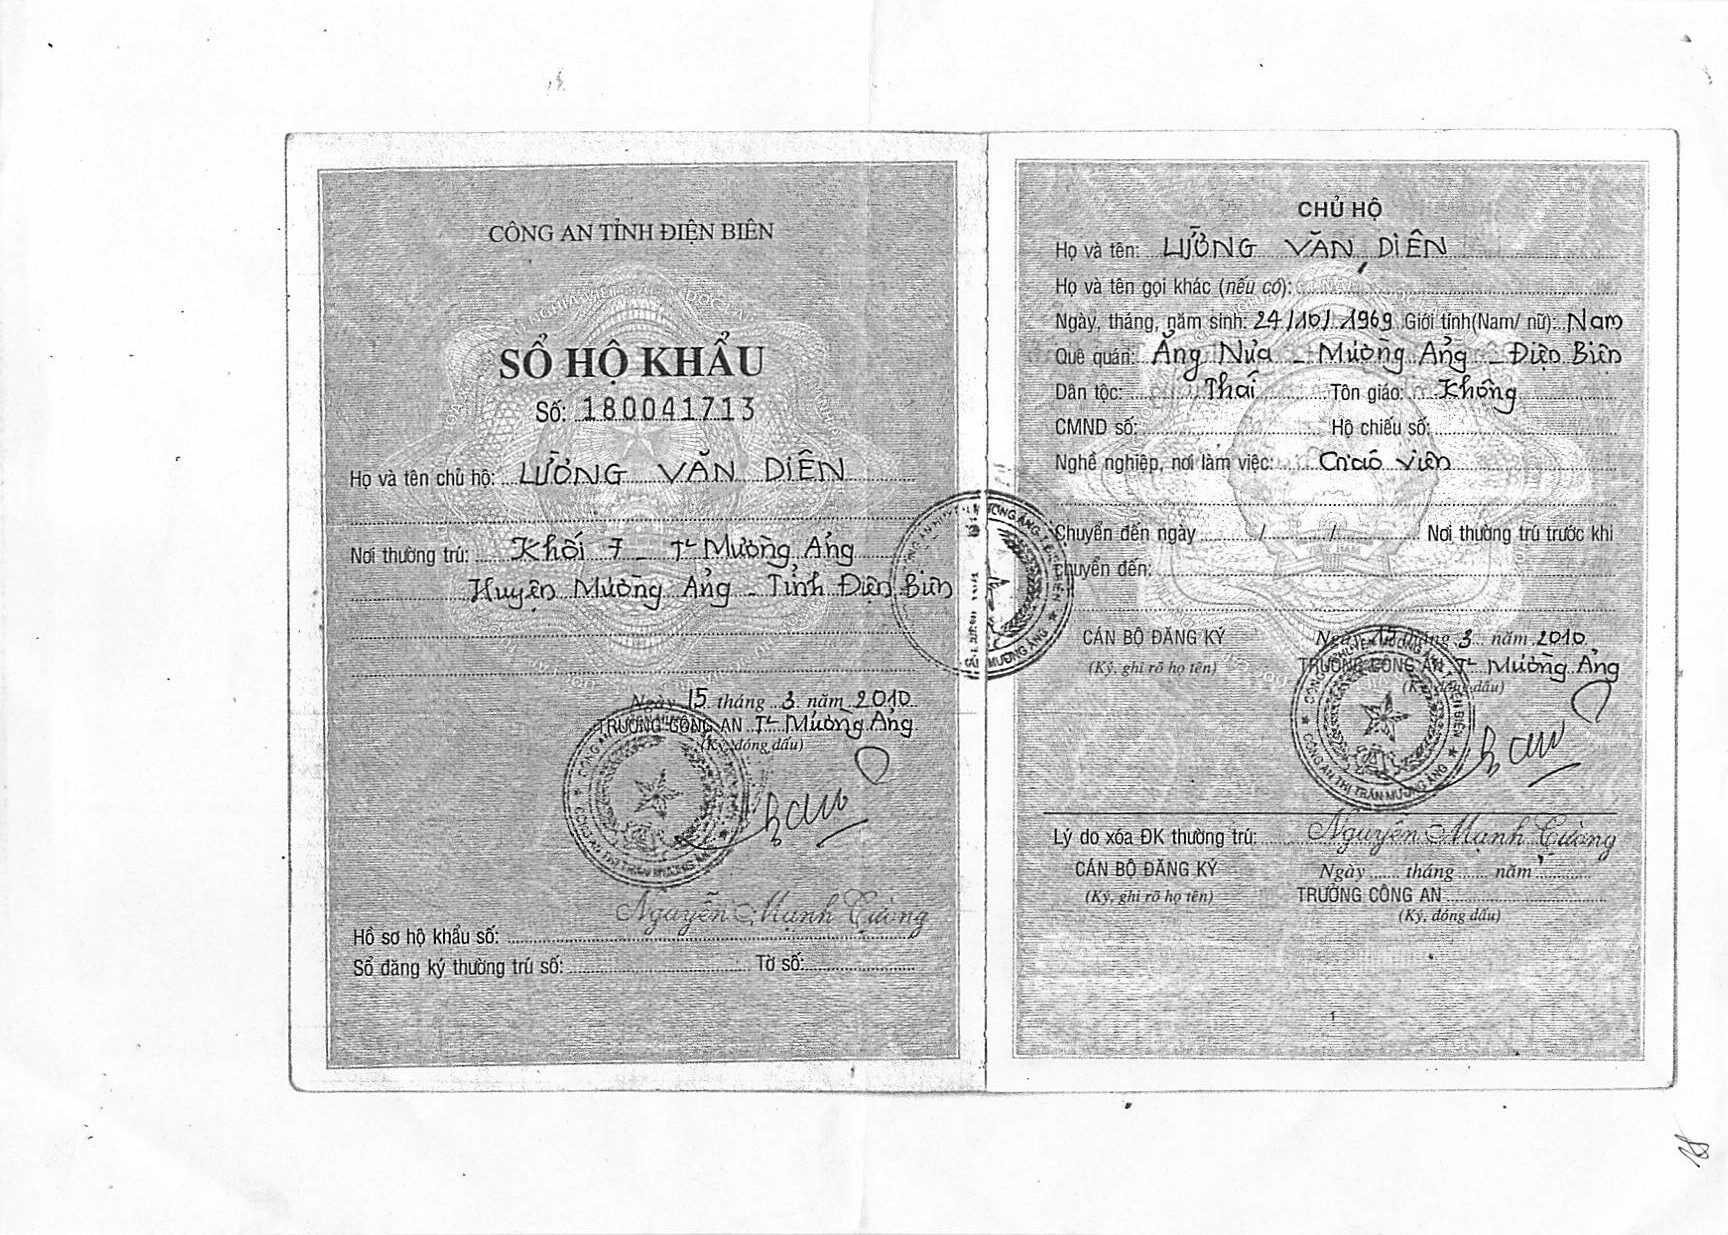 CÔNG AN TỈNH ĐIỆN BIÊN
SỔ HỘ KHẨU
Số: 180041713
Họ và tên chủ hộ: LƯỜNG VĂN DIÊN
Nơi thường trú: Khối 7 - TT Mường Ảng
Huyện Mường Ảng - Tỉnh Điện Biên
Ngày 15 tháng 3 năm 2010
TRƯỞNG CÔNG AN TT Mường Ảng
(Ký, đóng dấu)
Nguyễn Mạnh Cường
Hồ sơ hộ khẩu số:
Sổ đăng ký thường trú số: Tờ số:
CHỦ HỘ
Họ và tên: LƯỜNG VĂN DIÊN
Họ và tên gọi khác (nếu có):
Ngày, tháng, năm sinh: 24/10/1969 Giới tính(Nam/ nữ): Nam
Quê quán: Ẳng Nưa - Mường Ảng - Điện Biên
Dân tộc: Thái Tôn giáo: Không
CMND số: Hộ chiếu số:
Nghề nghiệp, nơi làm việc: Giáo viên
Chuyển đến ngày / / Nơi thường trú trước khi
chuyển đến:
CÁN BỘ ĐĂNG KÝ
(Ký, ghi rõ họ tên)
Ngày 15 tháng 3 năm 2010
TRƯỞNG CÔNG AN TT Mường Ảng
(Ký, đóng dấu)
CÔNG AN THỊ TRẤN MƯỜNG ẢNG
Nguyễn Mạnh Cường
Lý do xóa ĐK thường trú:
CÁN BỘ ĐĂNG KÝ
(Ký, ghi rõ họ tên)
Ngày tháng năm
TRƯỞNG CÔNG AN
(Ký, đóng dấu)
1